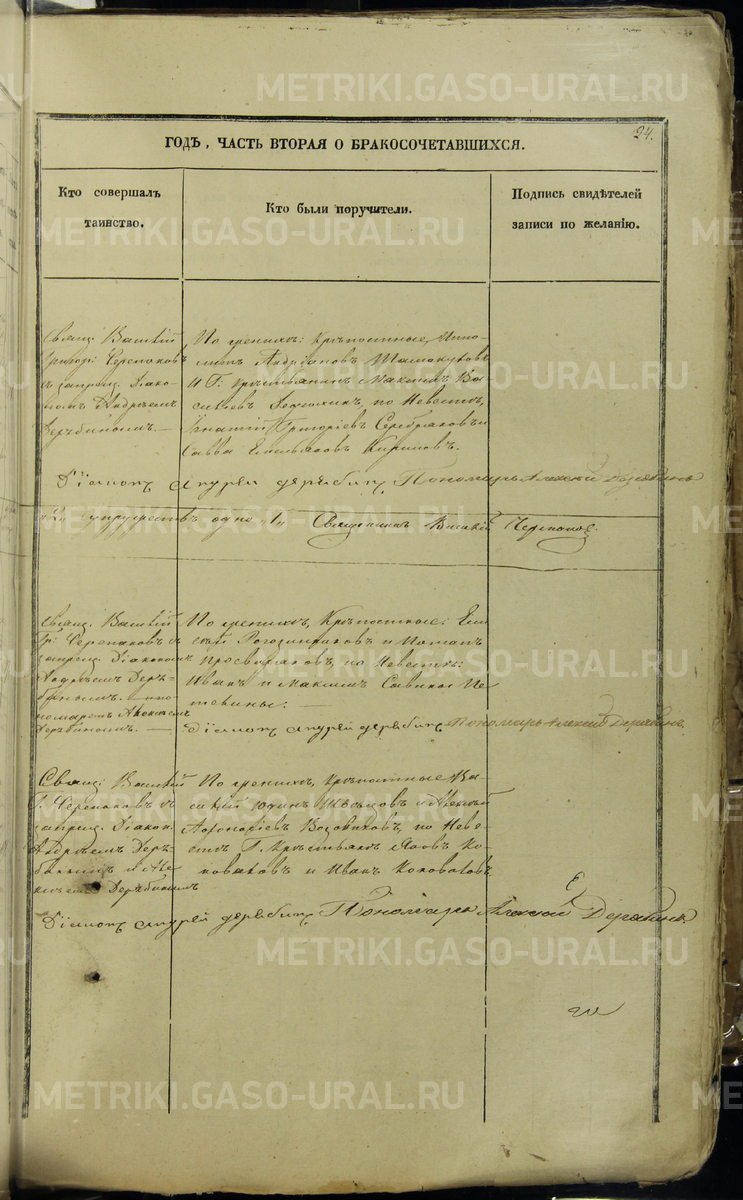 24.
ГОДЪ, ЧАСТЬ ВТОРАЯ О БРАКОСОЧЕТАВШИХСЯ.
Кто совершалъ
таинство.
Кто были поручители.
Подпись свидѣтелей
записи по желанію.
Свящ: Василій
Григор: Черепановъ
съ запрещ. Діако-
номъ Андреемъ
Дерябинымъ. —
По женихѣ: Крѣпостные, Иппо-
литъ Андріановъ
И Г: крестьянинъ Максимъ Ва-
сильевъ по Невестѣ,
Игнатій Григорьевъ Серебряковъ и
Савва Емельяновъ Кириловъ.
Діаконъ Андрей Дерябинъ, Пономарь Алексей Дерябинъ
супружествъ одно „1„ Священникъ Василій Черепановъ
Свящ: Василій
Гр: Черепановъ съ
запрещ. Діакономъ
Андреемъ Деря-
бинымъ. — по-
номаремъ Алексеемъ
Дерябинымъ. —
По женихѣ, Крѣпостные:
Рогозинниковъ и Потапъ
Просвиряковъ, по Невестѣ:
Иванъ и Максимъ Савины Пе-
телины. —
Діаконъ Андрей Дерябинъ Пономарь Алексей Дерябинъ.
Свящ: Василій
Г. Черепановъ съ
запрещ. Діакон.
Андреемъ Деря-
бинымъ и Але-
ксеемъ Дерябинымъ
По женихѣ, Крѣпостные Ва-
силій Юдинъ и Алексей
Возовиковъ, по Неве-
стѣ Г. Крестьяне Яковъ Ко-
новаловъ и Иванъ Коноваловъ
Діаконъ Андрей Дерябинъ Пономарь Алексей Дерябинъ.
METRIKI.GASO-URAL.RU